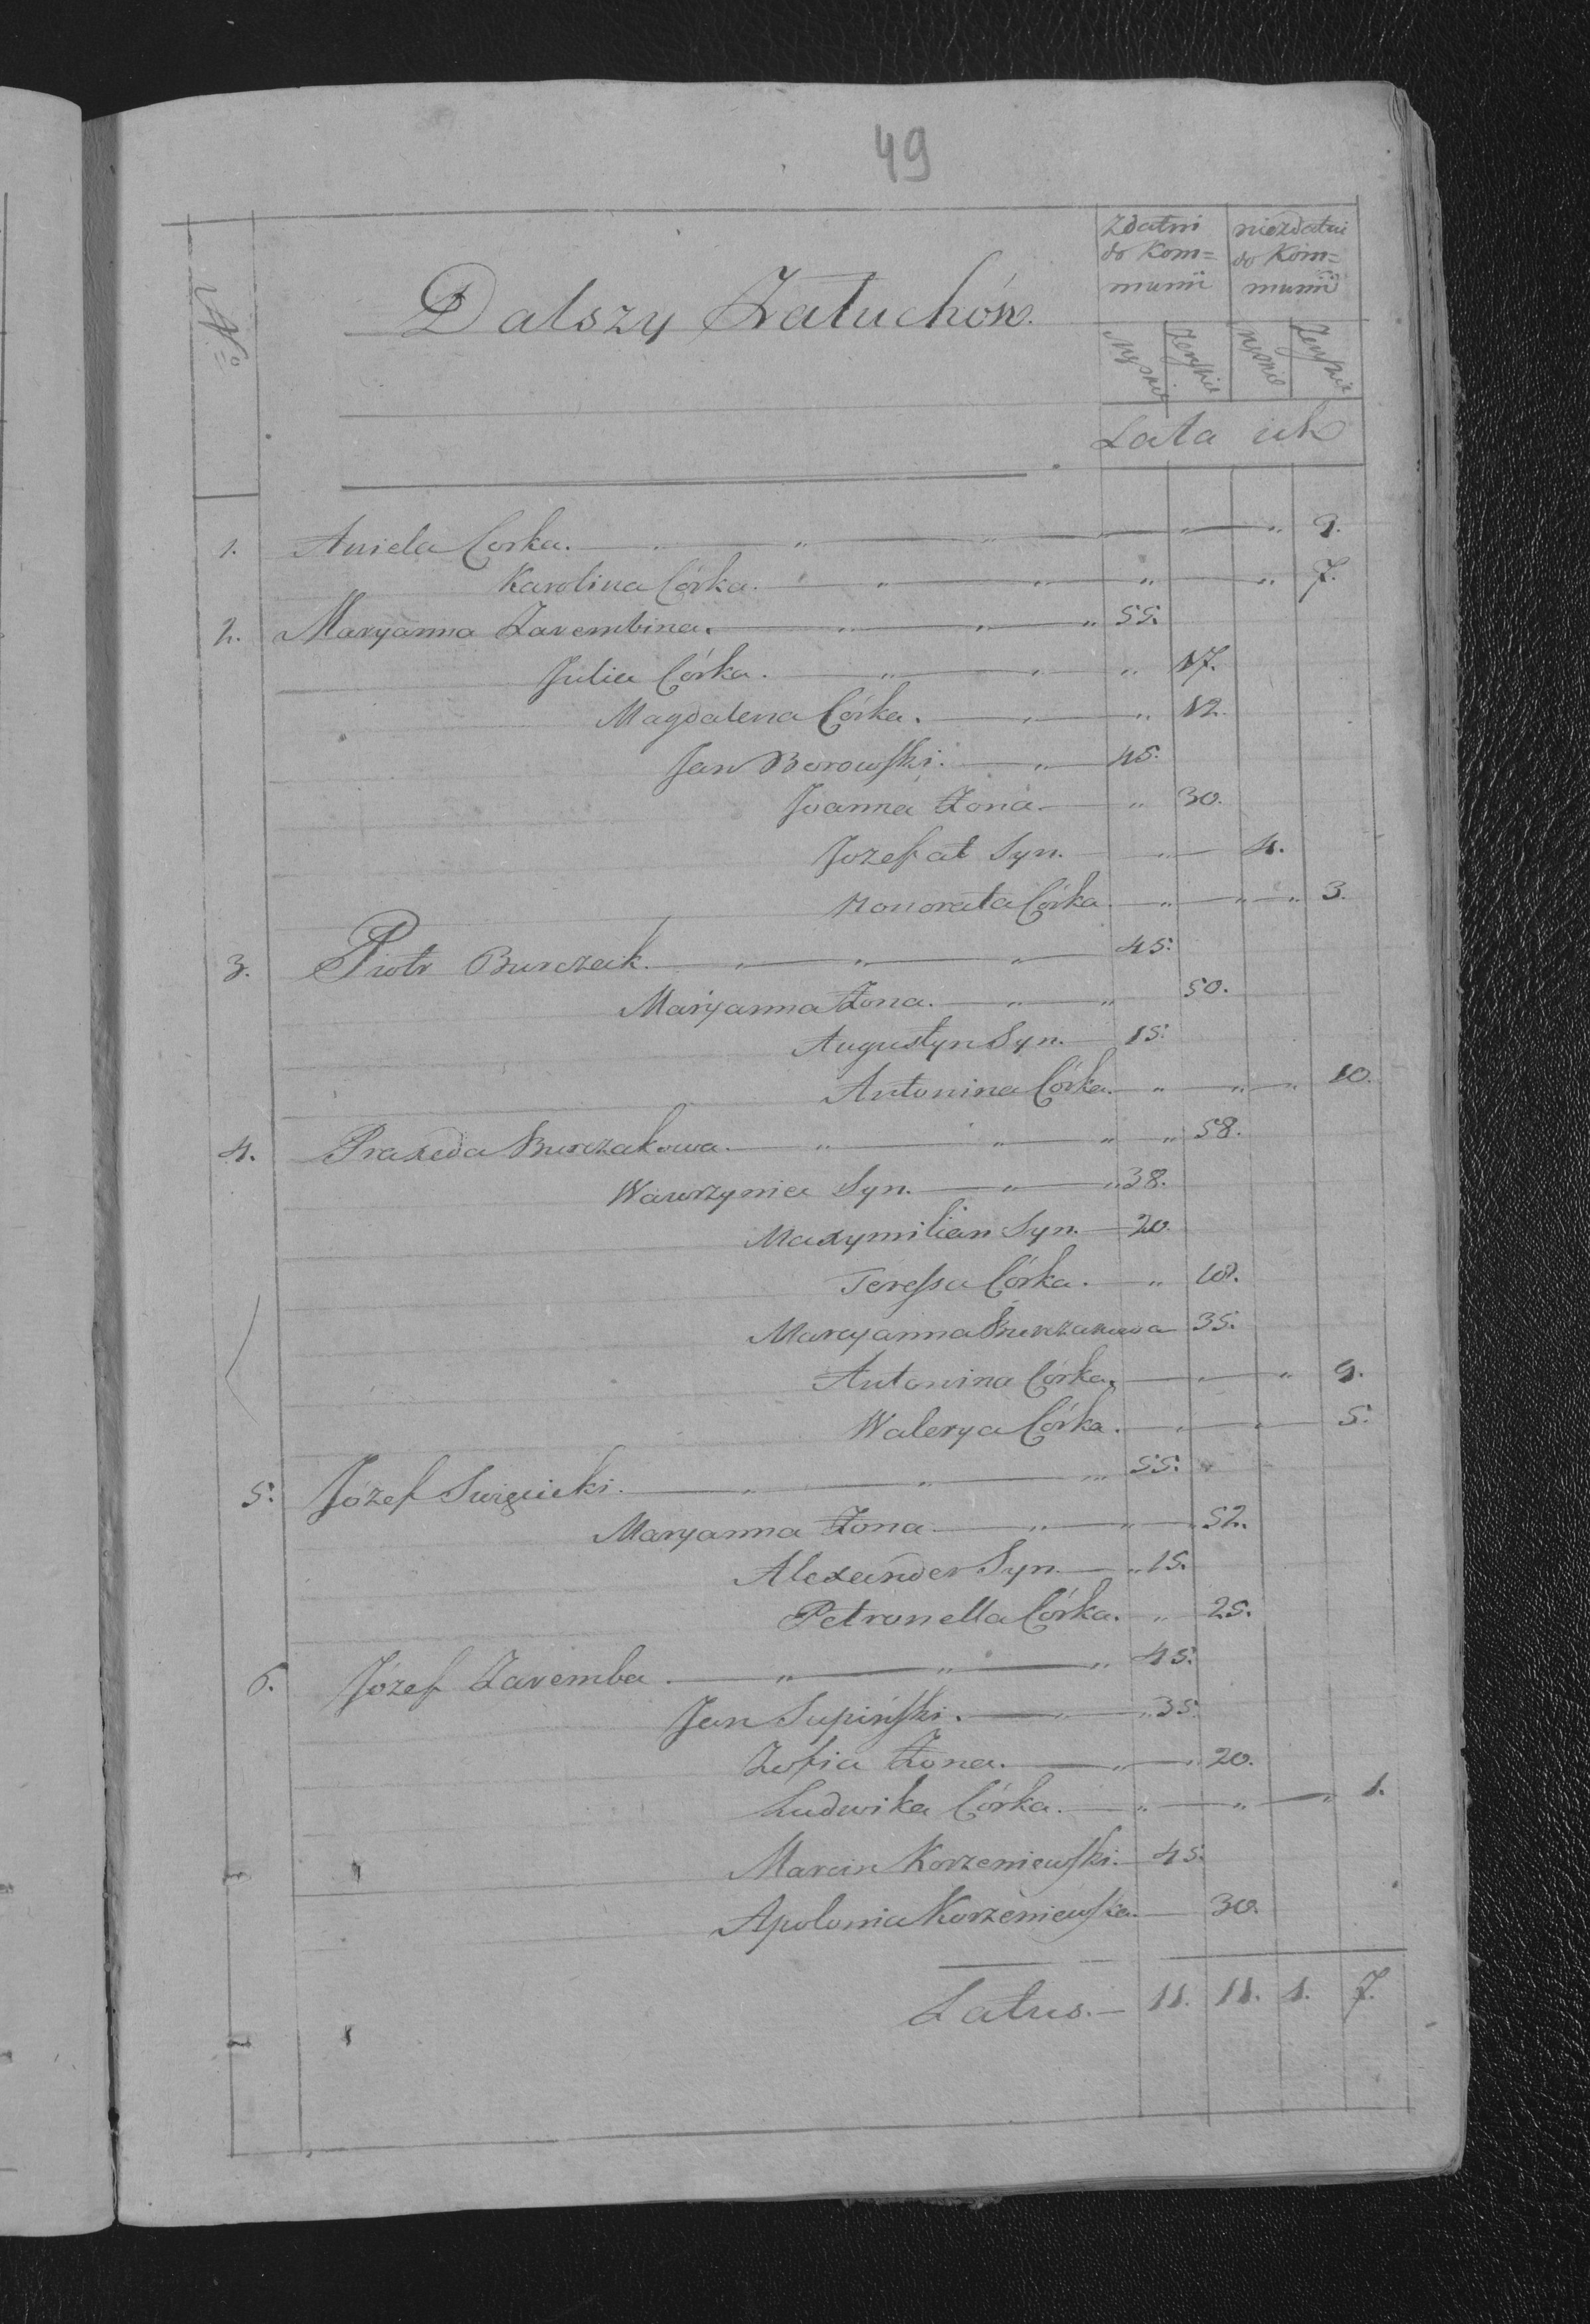 49
No
Dalszy Załuchów.
Zdatni do Kom=munii
niezdatni do Kom=munii
Męskie Żeńskie Męskie Żeńskie
Lata ich
1. Aniela Corka. 9.
Karolina Córka. 7.
2. Maryanna Zarembina. 55.
Julia Córka. 17.
Magdalena Córka. 12.
Jan Borowski. 45.
Joanna Żona 30.
Jozefat Syn. 4.
Honorata Córka 3.
3. Piotr Burczak. 45.
Maryanna Żona. 50.
Augustyn Syn. 15.
Antonina Córka. 10.
4. Praxeda Burczakowa. 58.
Wawrzyniec Syn. 38.
Maxymilian Syn. 20.
Teressa Córka. 18.
Maryanna Burczakowa 35.
Antonina Córka. 9.
Walerya Córka. 5.
5. Józef Swięcicki. 55.
Maryanna Żona 52.
Alexander Syn 15.
Petronella Córka. 25.
6. Józef Zaremba. 45.
Jan Supiński. 35.
Zofia Żona. 20.
Ludwika Córka. 1.
Marcin Korzeniewski. 45.
Apolonia Korzeniewska. 30.
Latus. 11. 11. 1. 7.